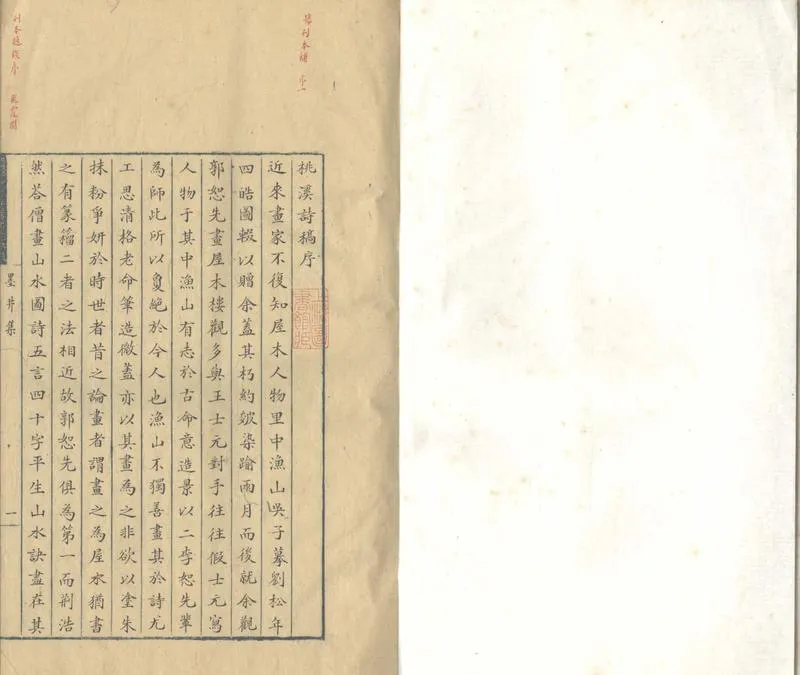 桃溪詩稿序
近來畫家不復知屋木人物里中漁山吳子摹劉松年
四皓圖輟以贈余蓋其朽約皴染踰兩月而後就余觀
郭恕先畫屋木樓觀多與王士元對手往往假士元寫
人物于其中漁山有志於古命意造景以二李恕先輩
為師此所以敻絕於今人也漁山不獨善畫其於詩尤
工思清格老命筆造微蓋亦以其畫為之非欲以塗朱
抹粉爭妍於時世者昔之論畫者謂畫之為屋木猶書
之有篆籀二者之法相近故郭恕先俱為第一而荆浩
然荅僧畫山水圖詩五言四十字平生山水訣盡在其
墨井集
一